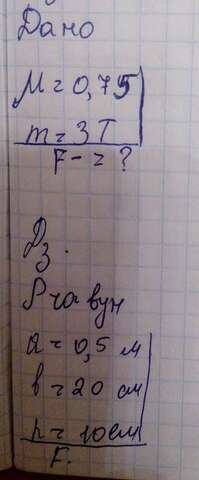 Дано
μ = 0,75
m = 3 Т
F - = ?
Дз.
Рчавун
a = 0,5 м
b = 20 см
h = 10 см
F.